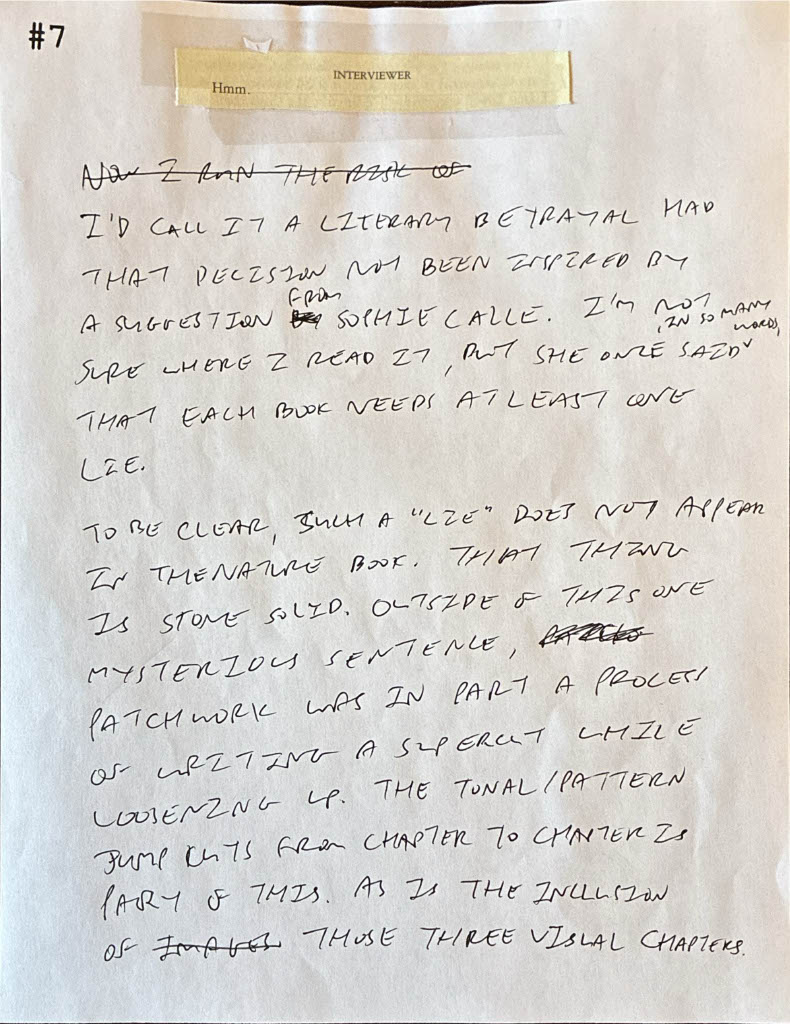 #7
INTERVIEWER
Hmm.
NOW I RUN THE RISK OF
I'D CALL IT A LITERARY BETRAYAL HAD
THAT DECISION NOT BEEN INSPIRED BY
A SUGGESTION FROM SOPHIE CALLE. I'M NOT
SURE WHERE I READ IT, BUT SHE ONCE SAID, IN SO MANY WORDS,
THAT EACH BOOK NEEDS AT LEAST ONE
LIE.
TO BE CLEAR, SUCH A "LIE" DOES NOT APPEAR
IN THE NATURE BOOK. THAT THING
IS STONE SOLID. OUTSIDE OF THIS ONE
MYSTERIOUS SENTENCE,
PATCHWORK WAS IN PART A PROCESS
OF WRITING A SUPERCUT WHILE
LOOSENING UP. THE TONAL/PATTERN
JUMP CUTS FROM CHAPTER TO CHAPTER IS
PART OF THIS. AS IS THE INCLUSION
OF IMAGES THOSE THREE VISUAL CHAPTERS.